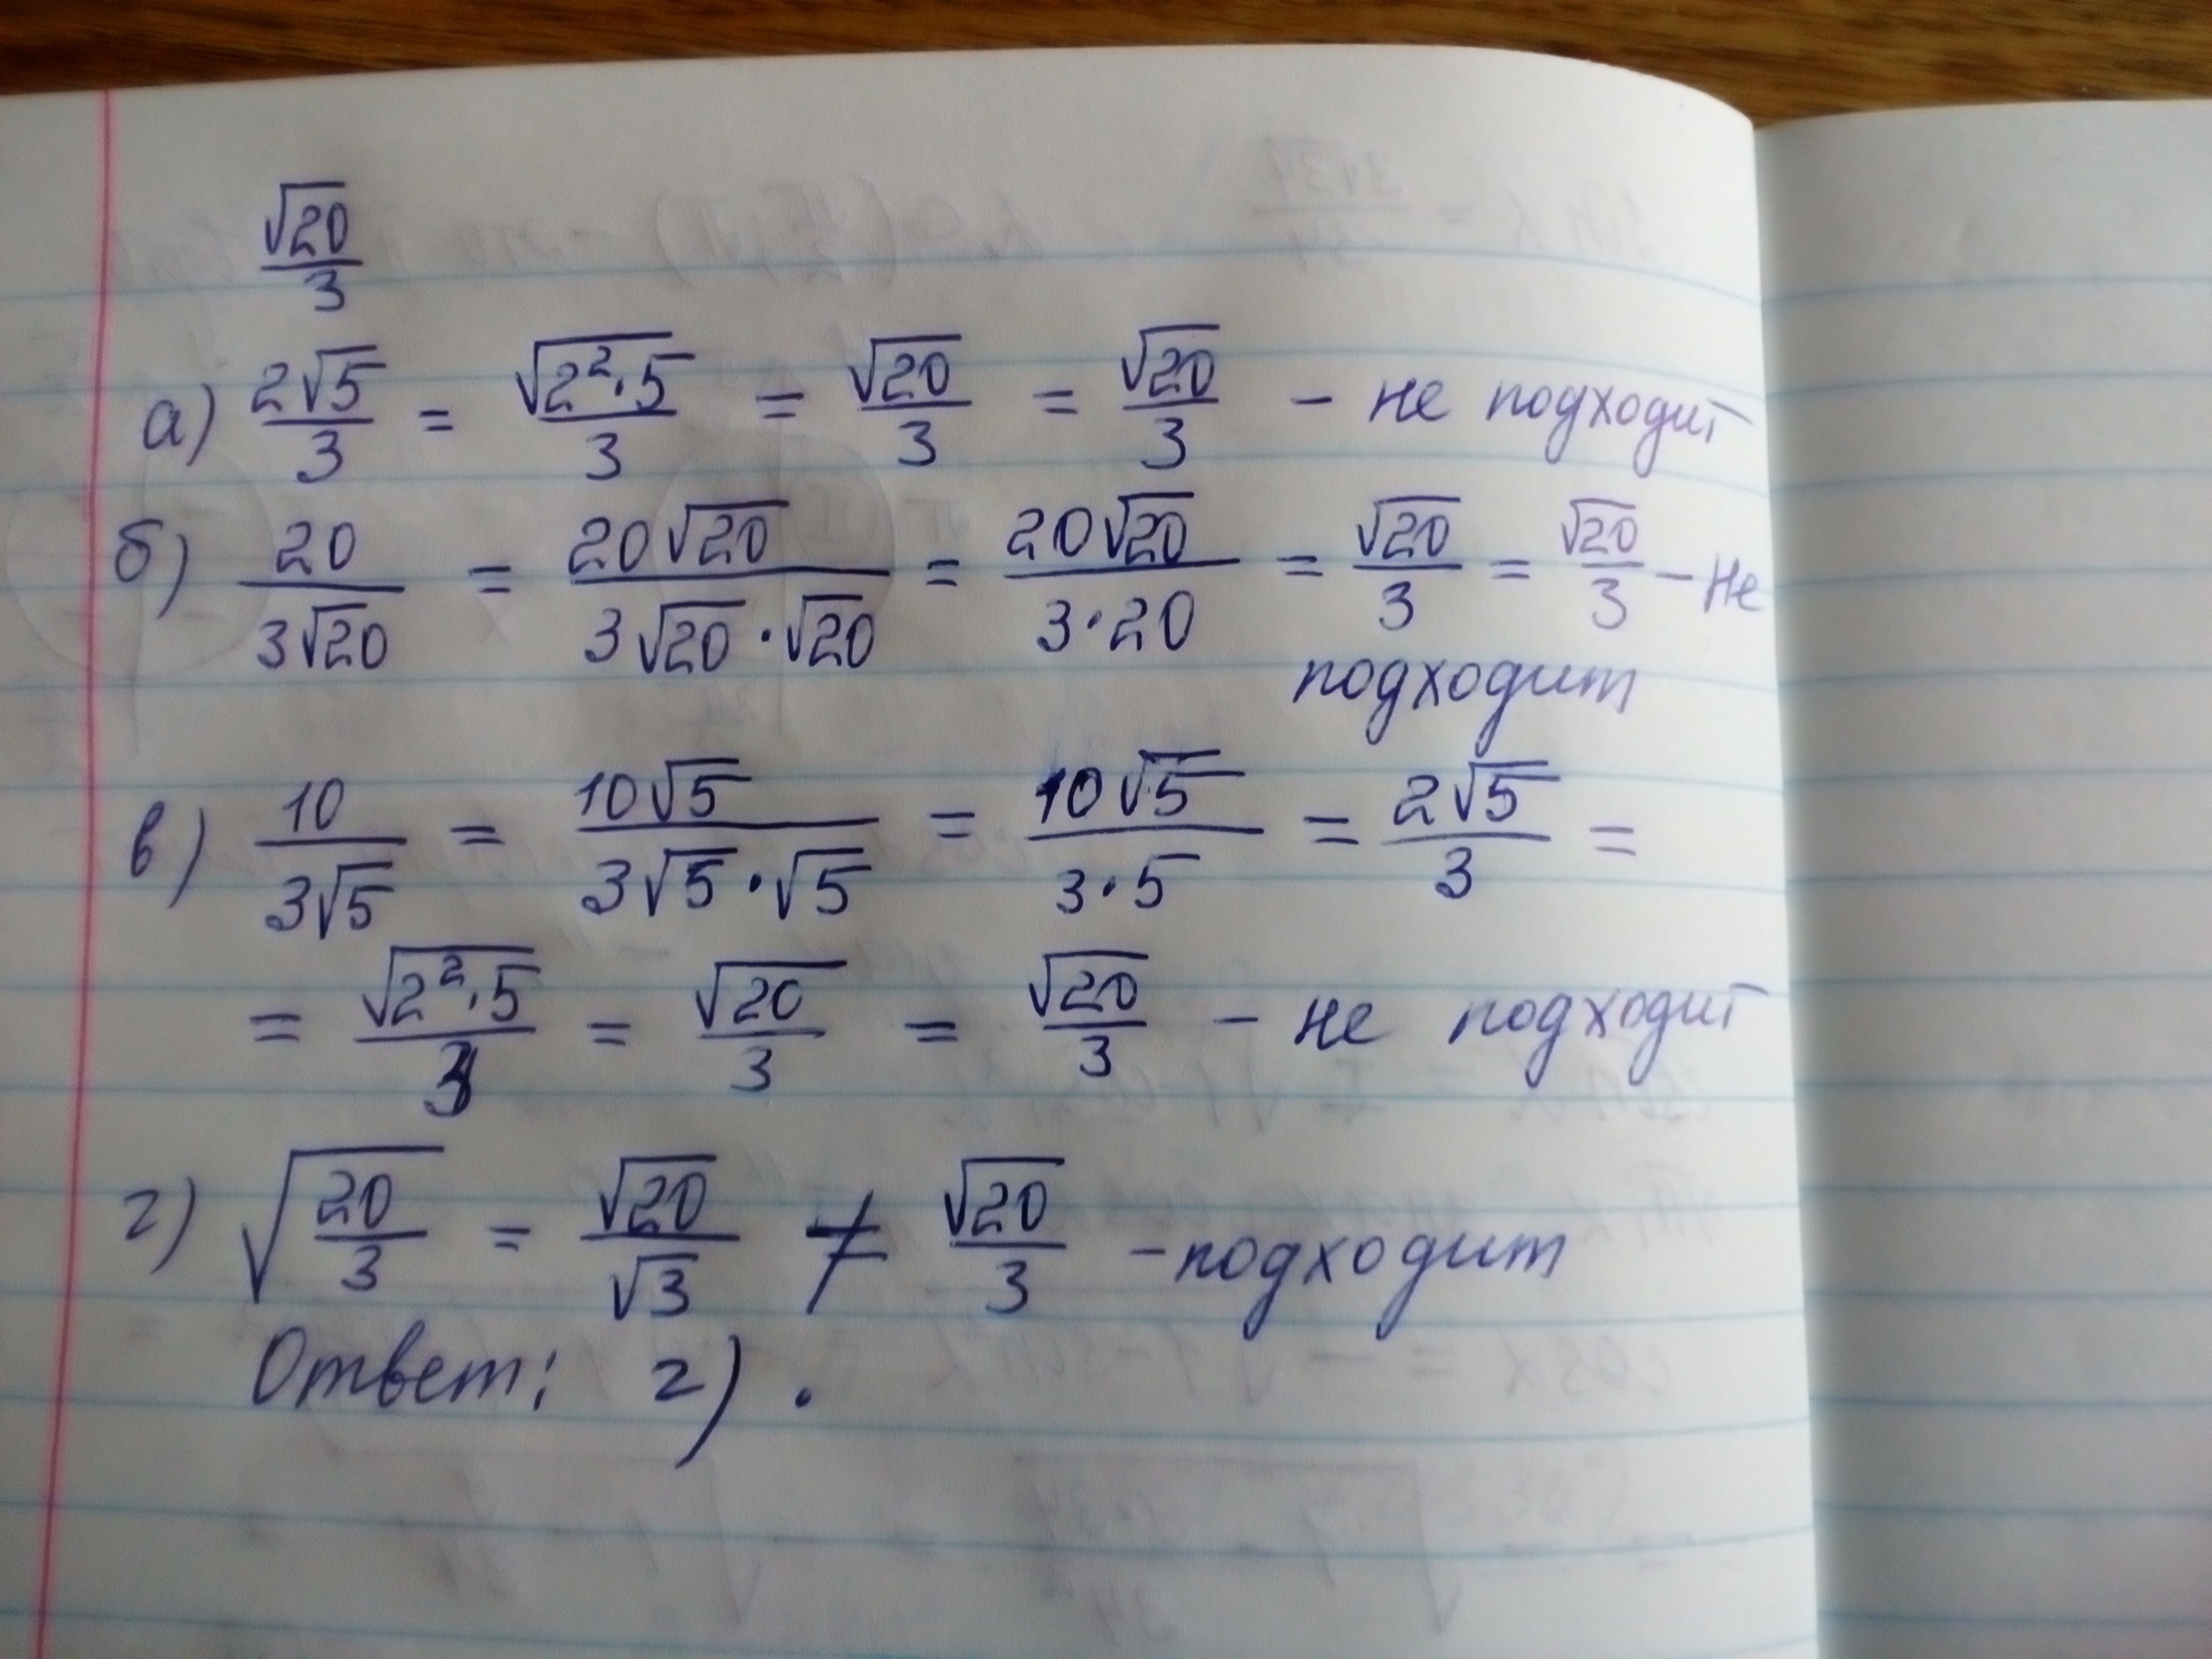 √20/3
а) 2√5/3 = √(2²·5)/3 = √20/3 = √20/3 – не подходит
б) 20/(3√20) = 20√20/(3√20·√20) = 20√20/(3·20) = √20/3 = √20/3 – не
подходит
в) 10/(3√5) = 10√5/(3√5·√5) = 10√5/(3·5) = 2√5/3 =
= √(2²·5)/3 = √20/3 = √20/3 – не подходит
г) √(20/3) = √20/√3 ≠ √20/3 – подходит
Ответ: г).